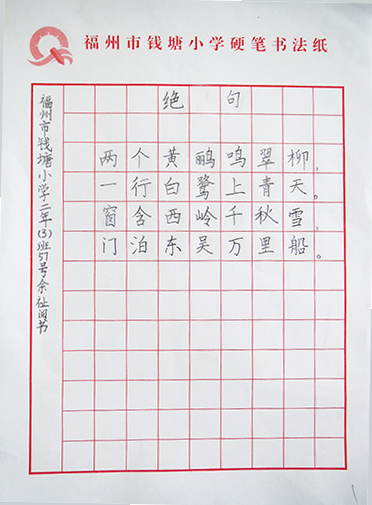 福州市钱塘小学硬笔书法纸
绝句
两个黄鹂鸣翠柳,
一行白鹭上青天。
窗含西岭千秋雪,
门泊东吴万里船。
福州市钱塘小学二年(3)班57号余祉闻书